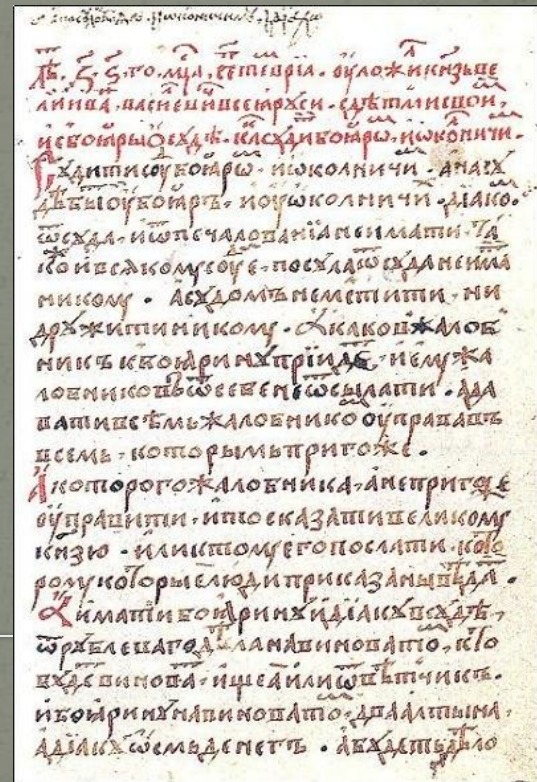 лѣ҇т ҂з҃ ѕ҃ го мц҇а септевріа оуложи кнзь ве
ликі ивā васиевичь всеа руси с дѣтми свои
и с бояры о судѣ ка҇к судити бояро и околничи
Судити су бояро и околничи а на су
дѣ быти оу бояръ и оу околничи діако
ѿ суда и ѿ печалованіа не имати та
ко и всякому соуе посула ѿ суда не има
никому а судомъ не мстити ни
дружити никому А каковъ жалоб
никъ к боярину пріиде и ему жа
лобниковъ ѿ себе не ѿсылати а да
вати всѣмь жалобнико оуправа въ
всемь которымь пригоже
А которого жалобника а не пригоже
оуправити и то сказати великому
кнзю или к тому его послати кото
рому которые люди приказаны вѣда
А имати боярину и діаку в судѣ
ѿ рублеваго дѣла на виновато кто
буде винова ищеа или ѿвѣтчикъ
и боярину на виновато два алтына
а діаку ѡсмь денегъ а будеть дѣло